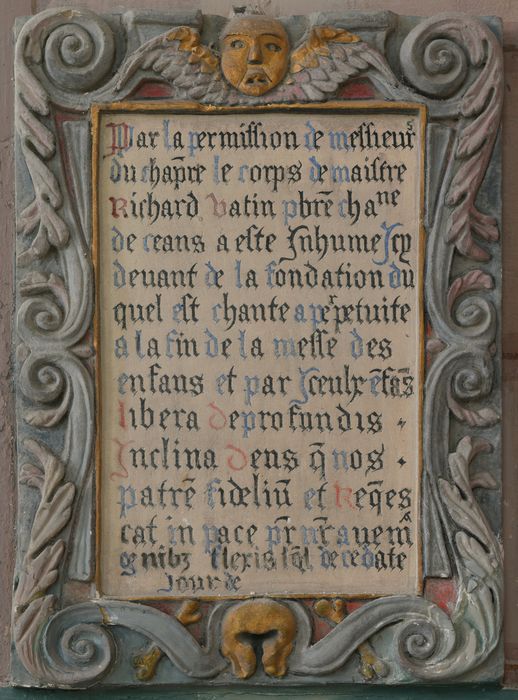 Par la permission de messieurs
du chap̄re le corps de maistre
Richard Vatin pbr̄e chane
de ceans a este Inhume Icy
devant de la fondation du
quel est chante a perpetuite
a la fin de la messe des
enfans et par Iceulx ēfās
libera De profundis
Inclina Deus q̄ nos
patrē fideliū et Req̄es
cat in pace pr̄ nr̄ ave mā
genibz flexis decedate
Jour de